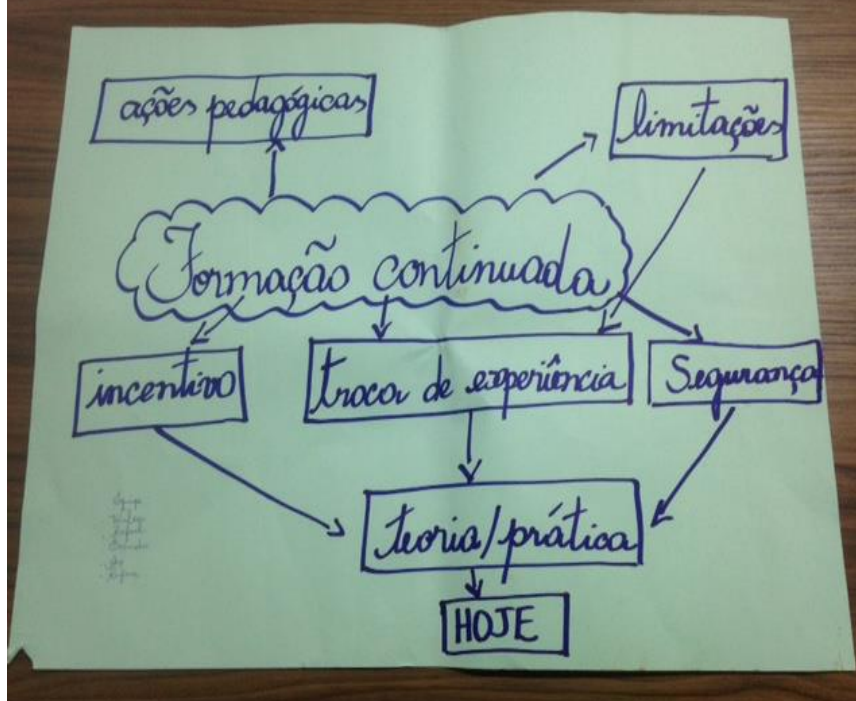 ações pedagógicas
limitações
Formação continuada
incentivo
troca de experiência
Segurança
teoria/prática
HOJE